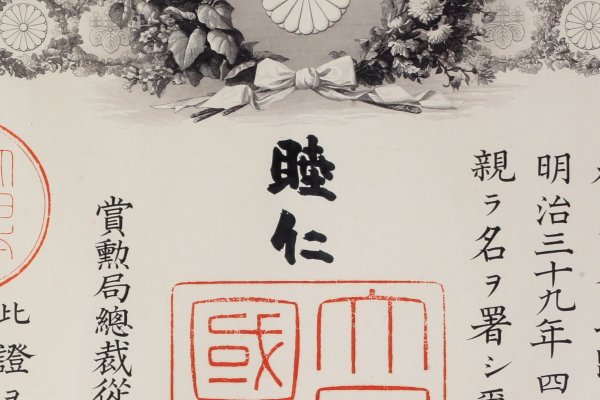 明治三十九年四
親ラ名ヲ署シ
睦仁
大
國
賞勲局總裁從
此證ヲ